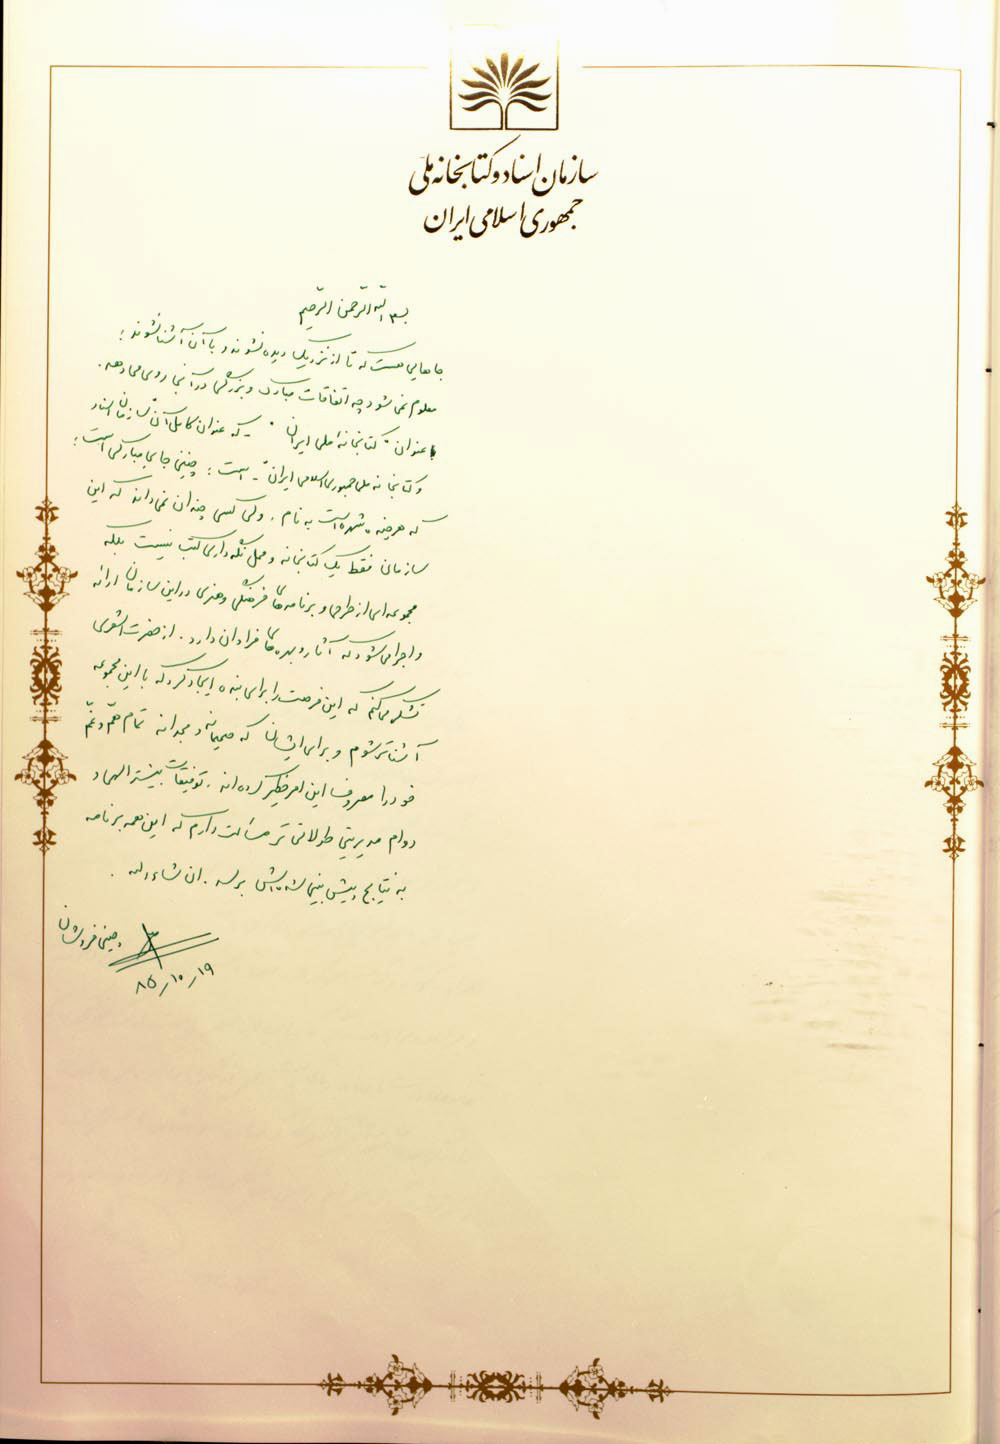 سازمان اسناد و کتابخانه ملی
جمهوری اسلامی ایران
بسم الله الرحمن الرحیم
جاهایی هست که تا از نزدیک دیده نشوند و با آن آشنا نشوند؛
معلوم نمی‌شود چه اتفاقات مبارک و بزرگی در آنجا روی می‌دهد.
با عنوان "کتابخانه ملی ایران" - که عنوان کامل آن "سازمان اسناد
و کتابخانه ملی جمهوری اسلامی ایران" - است؛ چنین جای مبارکی است؛
که هرچند شهره است به نام، ولی کسی چندان نمی‌داند که این
سازمان فقط یک کتابخانه و محل نگه‌داری کتب نیست بلکه
مجموعه‌ای از طرح‌ها و برنامه‌های فرهنگی و هنری در این سازمان ارائه
و اجرا می‌شود که آثار و بهره‌های فراوان دارد. از حضرت اشعری
تشکر می‌کنم که این فرصت را برای بنده ایجاد کرد که با این مجموعه
آشناتر شوم و برای ایشان که صمیمانه و مجدانه تمام همّ و غمّ
خود را معروف این امر خطیر کرده‌اند، توفیقات بیشتر الهی و
دوام مدیریتی طولانی‌تر مسئلت دارم که این همه برنامه
به نتایج پیش‌بینی شده‌اش برسد. ان شاءالله.
چینی‌فروشان
۸۵/۱۰/۱۹